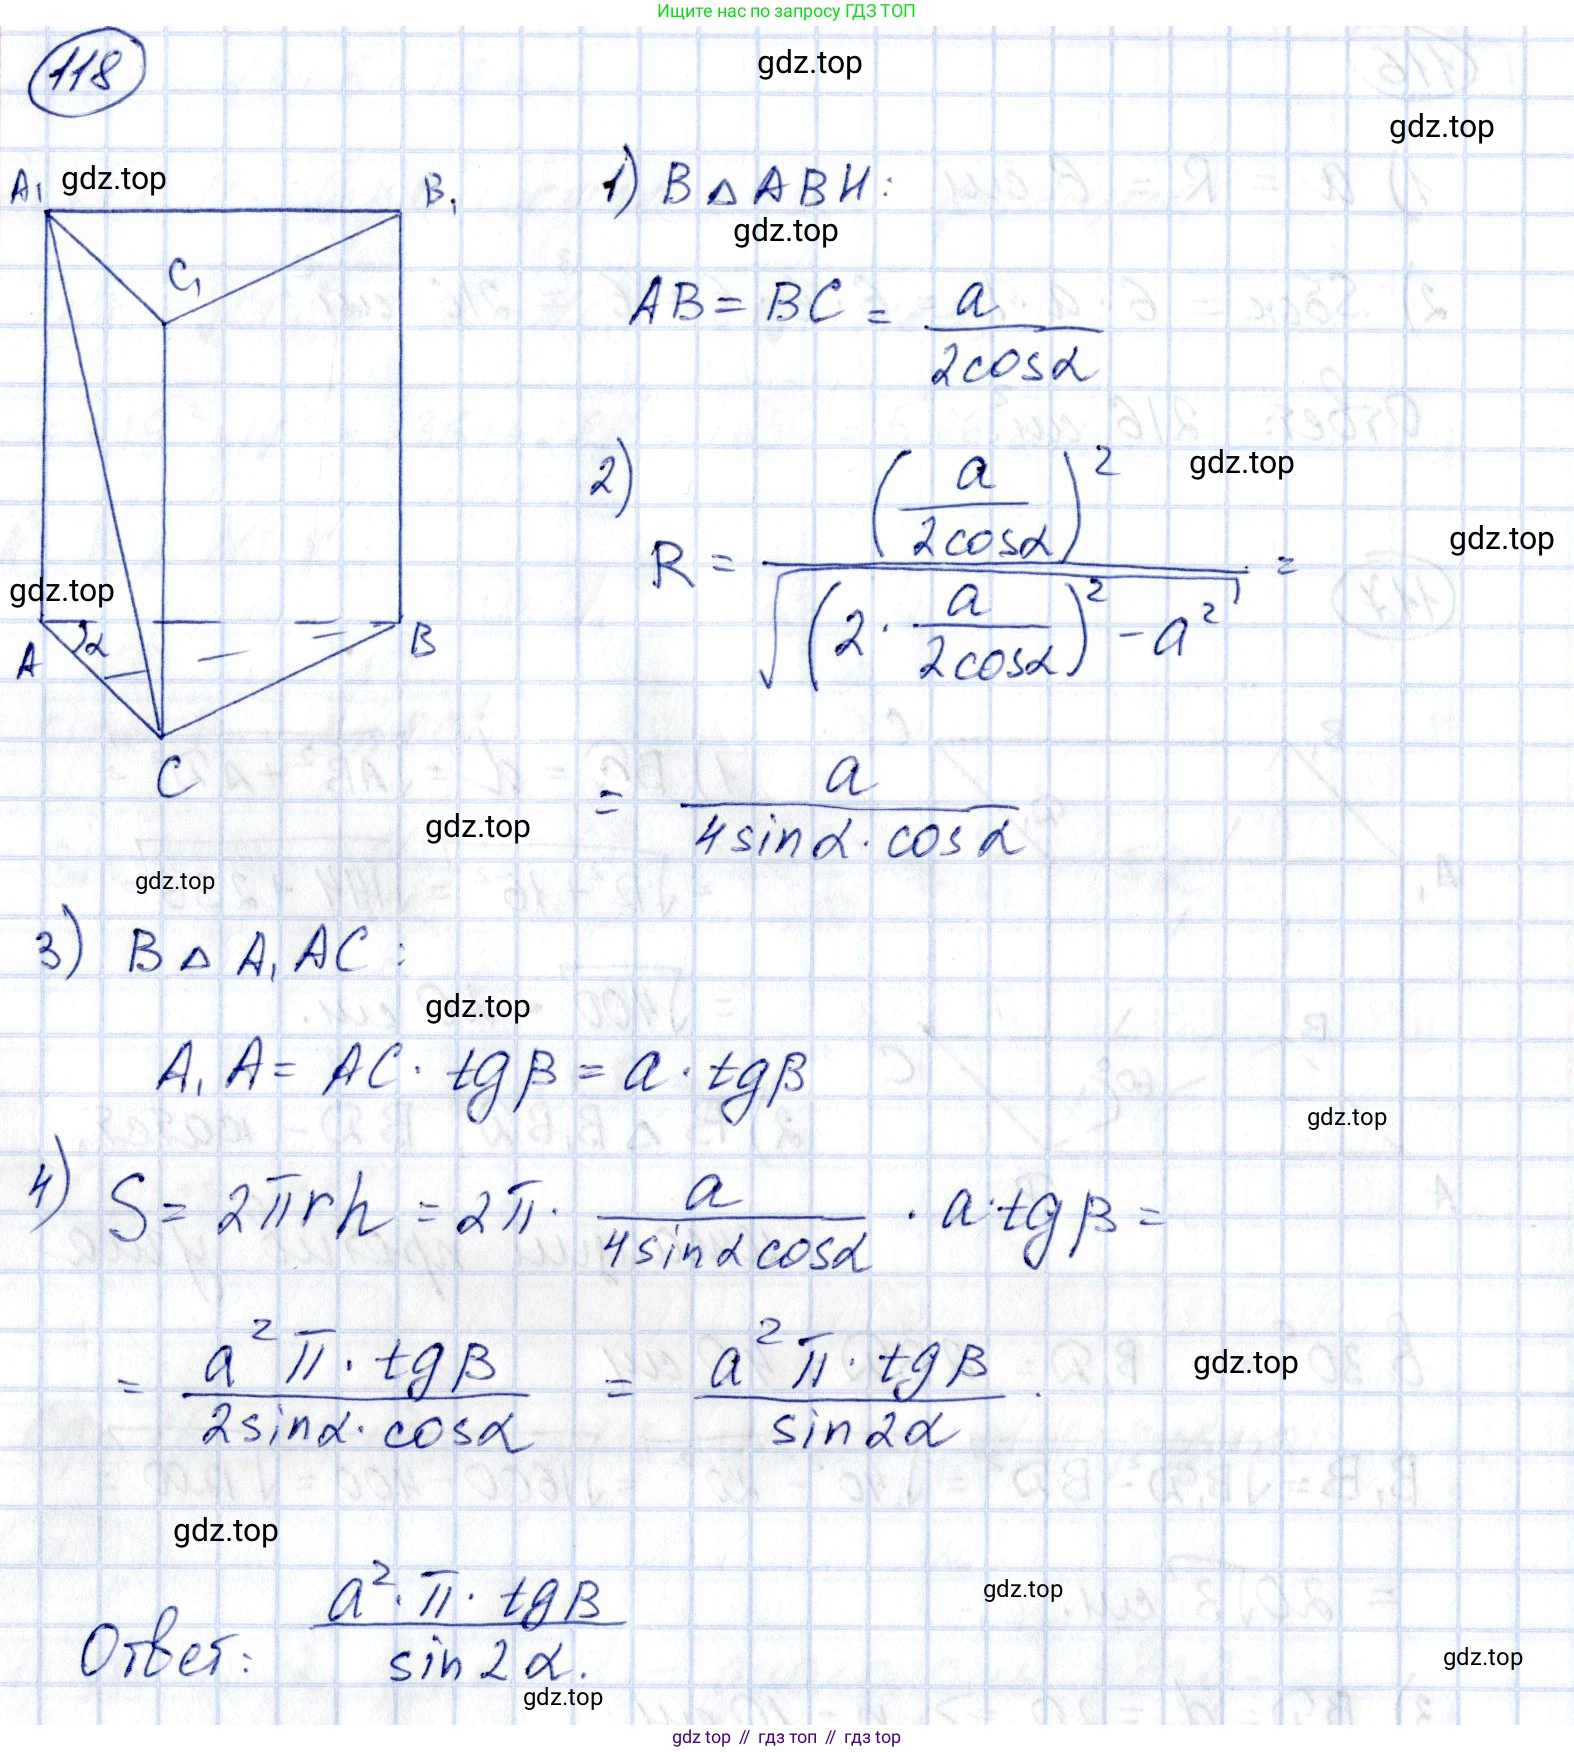 Ищите нас по запросу ГДЗ ТОП
118
gdz.top
gdz.top
A₁ gdz.top B₁
C₁
1) В △ ABH:
gdz.top
AB = BC = a / (2cosα)
2) R = (a / (2cosα))² / √((2 · a / (2cosα))² - a²) =
gdz.top
gdz.top
gdz.top
A α B
C
= a / (4sinα · cosα)
gdz.top
gdz.top
3) В △ A₁AC:
gdz.top
A₁A = AC · tgβ = a · tgβ
gdz.top
4) S = 2πrh = 2π · a / (4sinα cosα) · a · tgβ =
= a²π · tgβ / (2sinα · cosα) = a²π · tgβ / sin2α .
gdz.top
gdz.top
Ответ: a² · π · tgβ / sin2α.
gdz.top
gdz.top
gdz.top
gdz top // гдз топ // gdz top